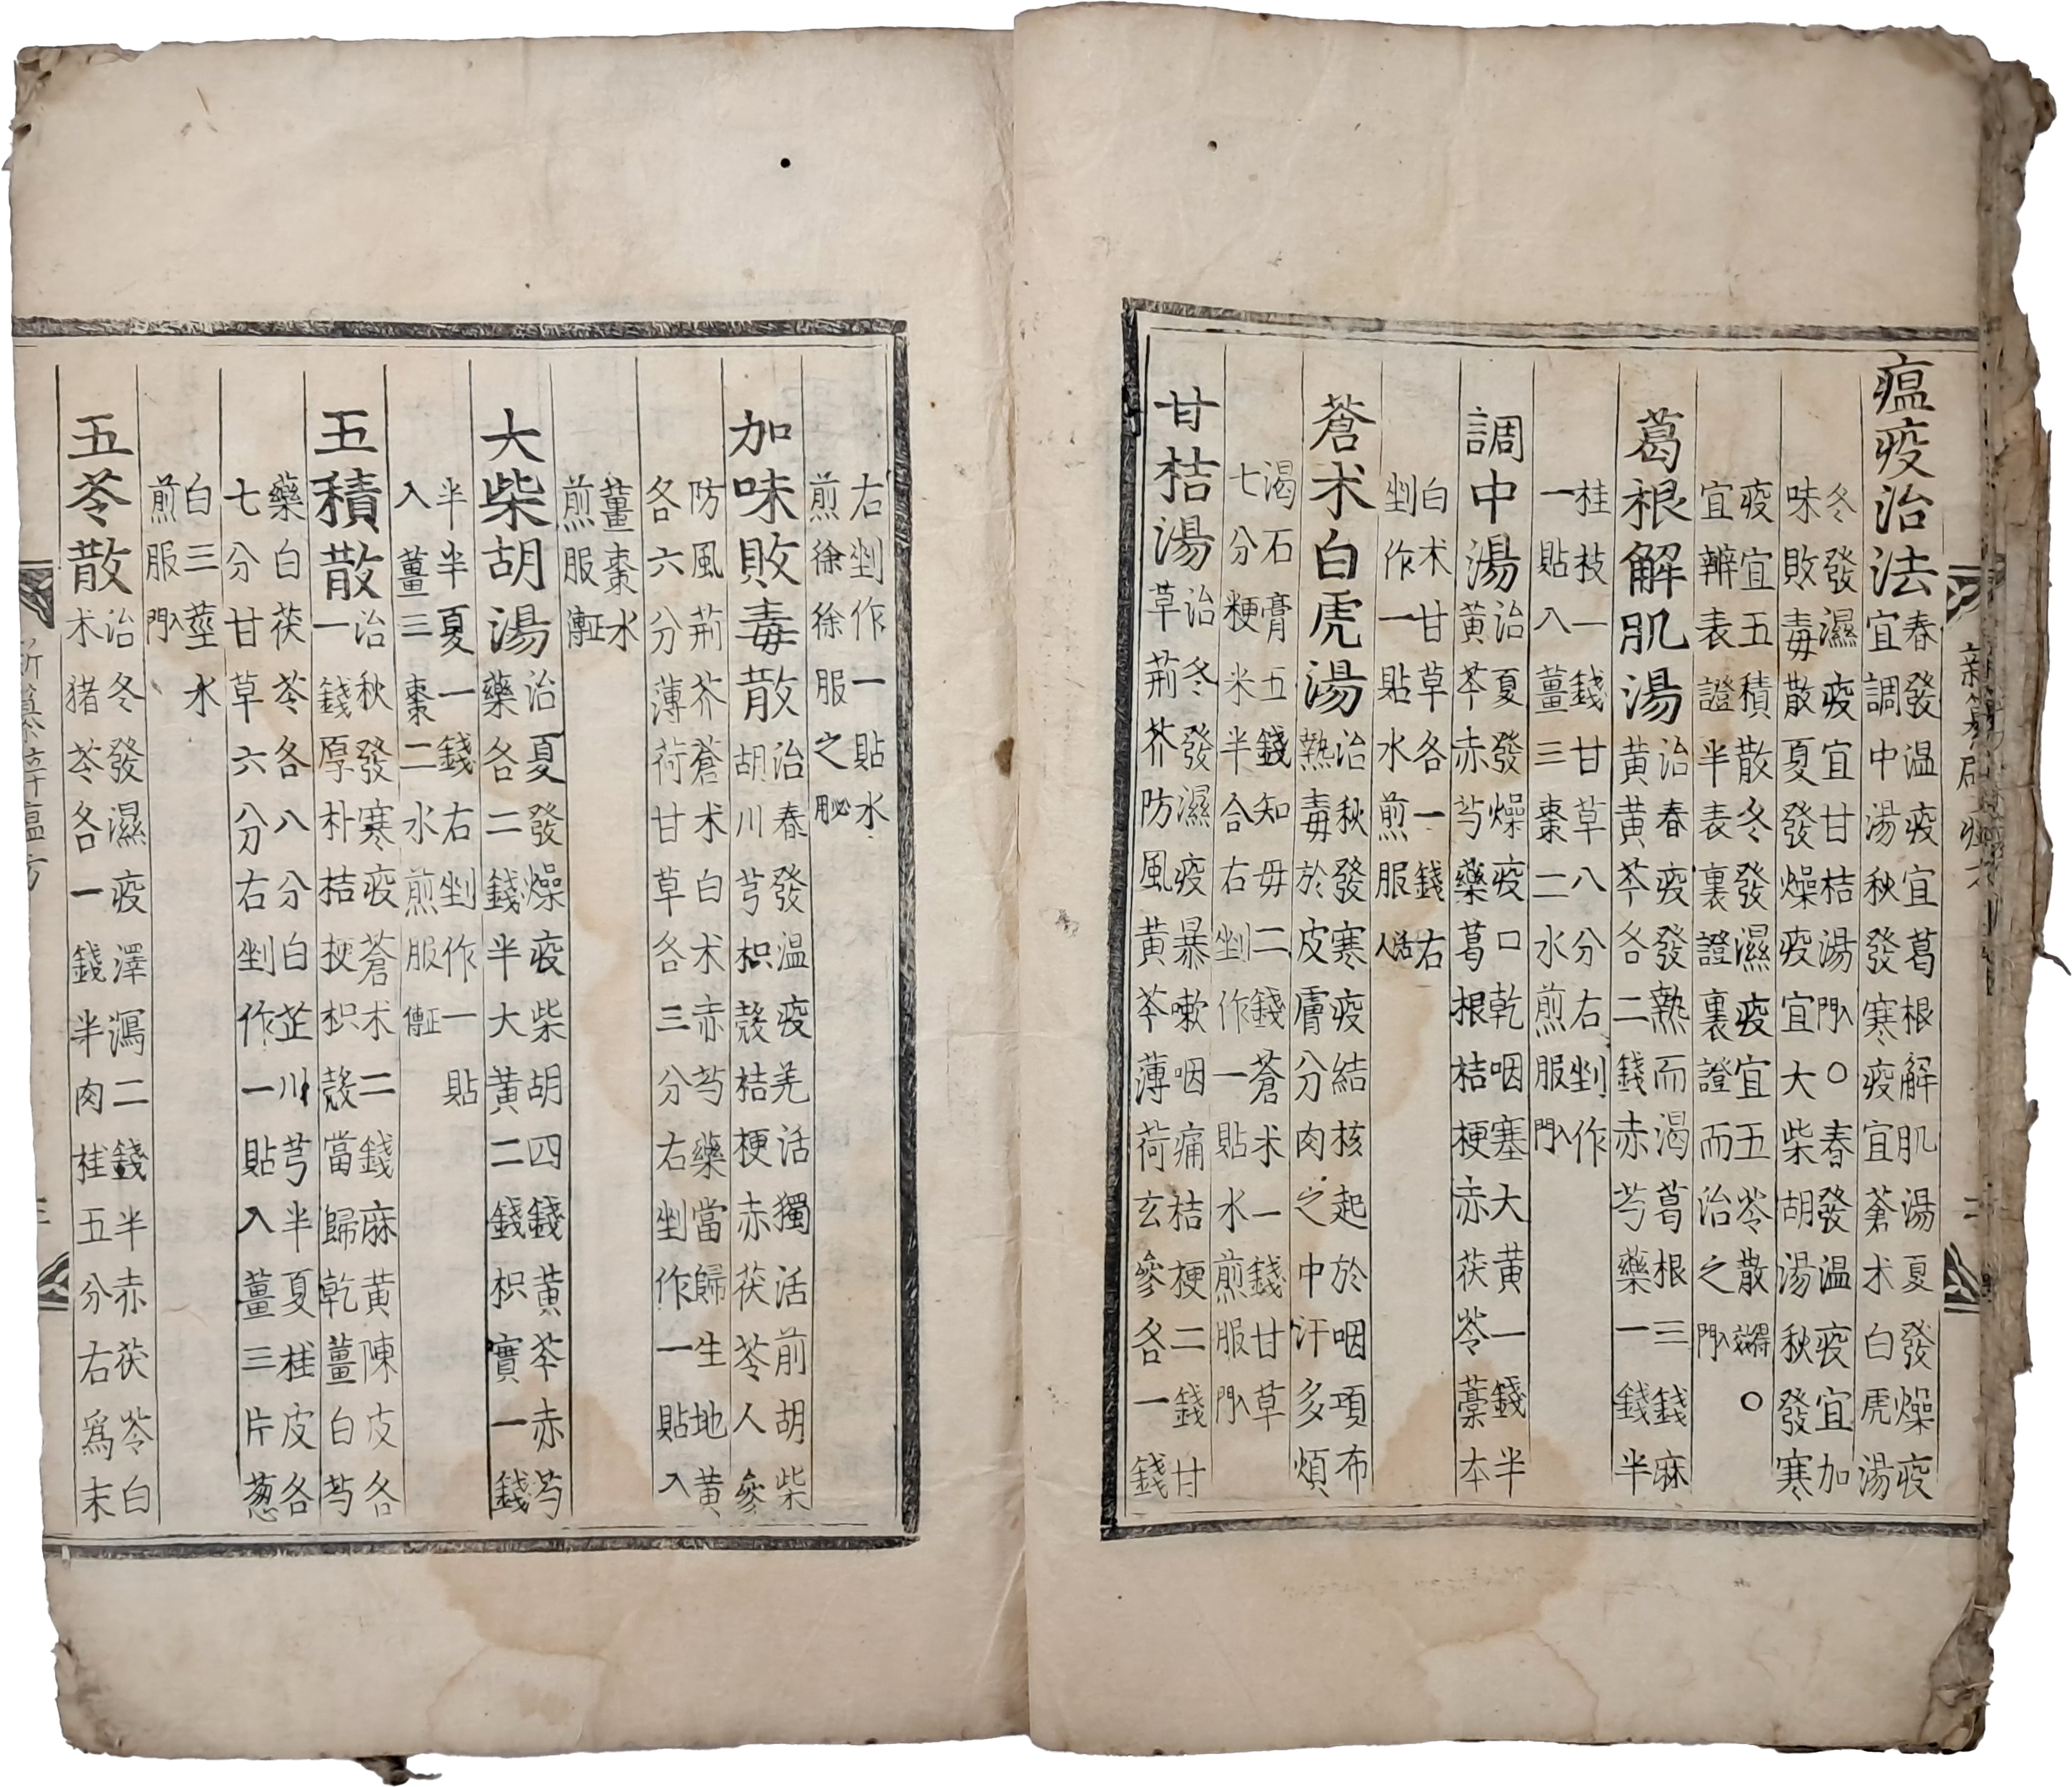 瘟疫治法
春發温疫宜葛根解肌湯夏發燥疫
宜調中湯秋發寒疫宜蒼朮白虎湯
冬發濕疫宜甘桔湯入門○春發温疫宜加
味敗毒散夏發燥疫宜大柴胡湯秋發寒
疫宜五積散冬發濕疫宜五苓散得效○
宜辨表證半表裏證裏證而治之入門
葛根解肌湯
治春疫發熱而渴葛根三錢麻
黄黄芩各二錢赤芍藥一錢半
桂枝一錢甘草八分右剉作
一貼入薑三棗二水煎服入門
調中湯
治夏發燥疫口乾咽塞大黄一錢半
黄芩赤芍藥葛根桔梗赤茯苓藁本
白朮甘草各一錢右
剉作一貼水煎服活人
蒼朮白虎湯
治秋發寒疫結核起於咽項布
熱毒於皮膚分肉之中汗多煩
渴石膏五錢知毋二錢蒼朮一錢甘草
七分粳米半合右剉作一貼水煎服入門
甘桔湯
治冬發濕疫暴嗽咽痛桔梗二錢甘
草荊芥防風黄芩薄荷玄參各一錢
右剉作一貼水
煎徐徐服之
加味敗毒散
治春發温疫羌活獨活前胡柴
胡川芎枳殼桔梗赤茯苓人參
防風荊芥蒼朮白朮赤芍藥當歸生地黄
各六分薄荷甘草各三分右剉作一貼入
薑棗水
煎服正傳
大柴胡湯
治夏發燥疫柴胡四錢黄芩赤芍
藥各二錢半大黄二錢枳實一錢
半半夏一錢右剉作一貼
入薑三棗二水煎服正傳
五積散
治秋發寒疫蒼朮二錢麻黄陳皮各
一錢厚朴桔梗枳殼當歸乾薑白芍
藥白茯苓各八分白芷川芎半夏桂皮各
七分甘草六分右剉作一貼入薑三片葱
白三莖水
煎服入門
五苓散
治冬發濕疫澤瀉二錢半赤茯苓白
朮猪苓各一錢半肉桂五分右爲末